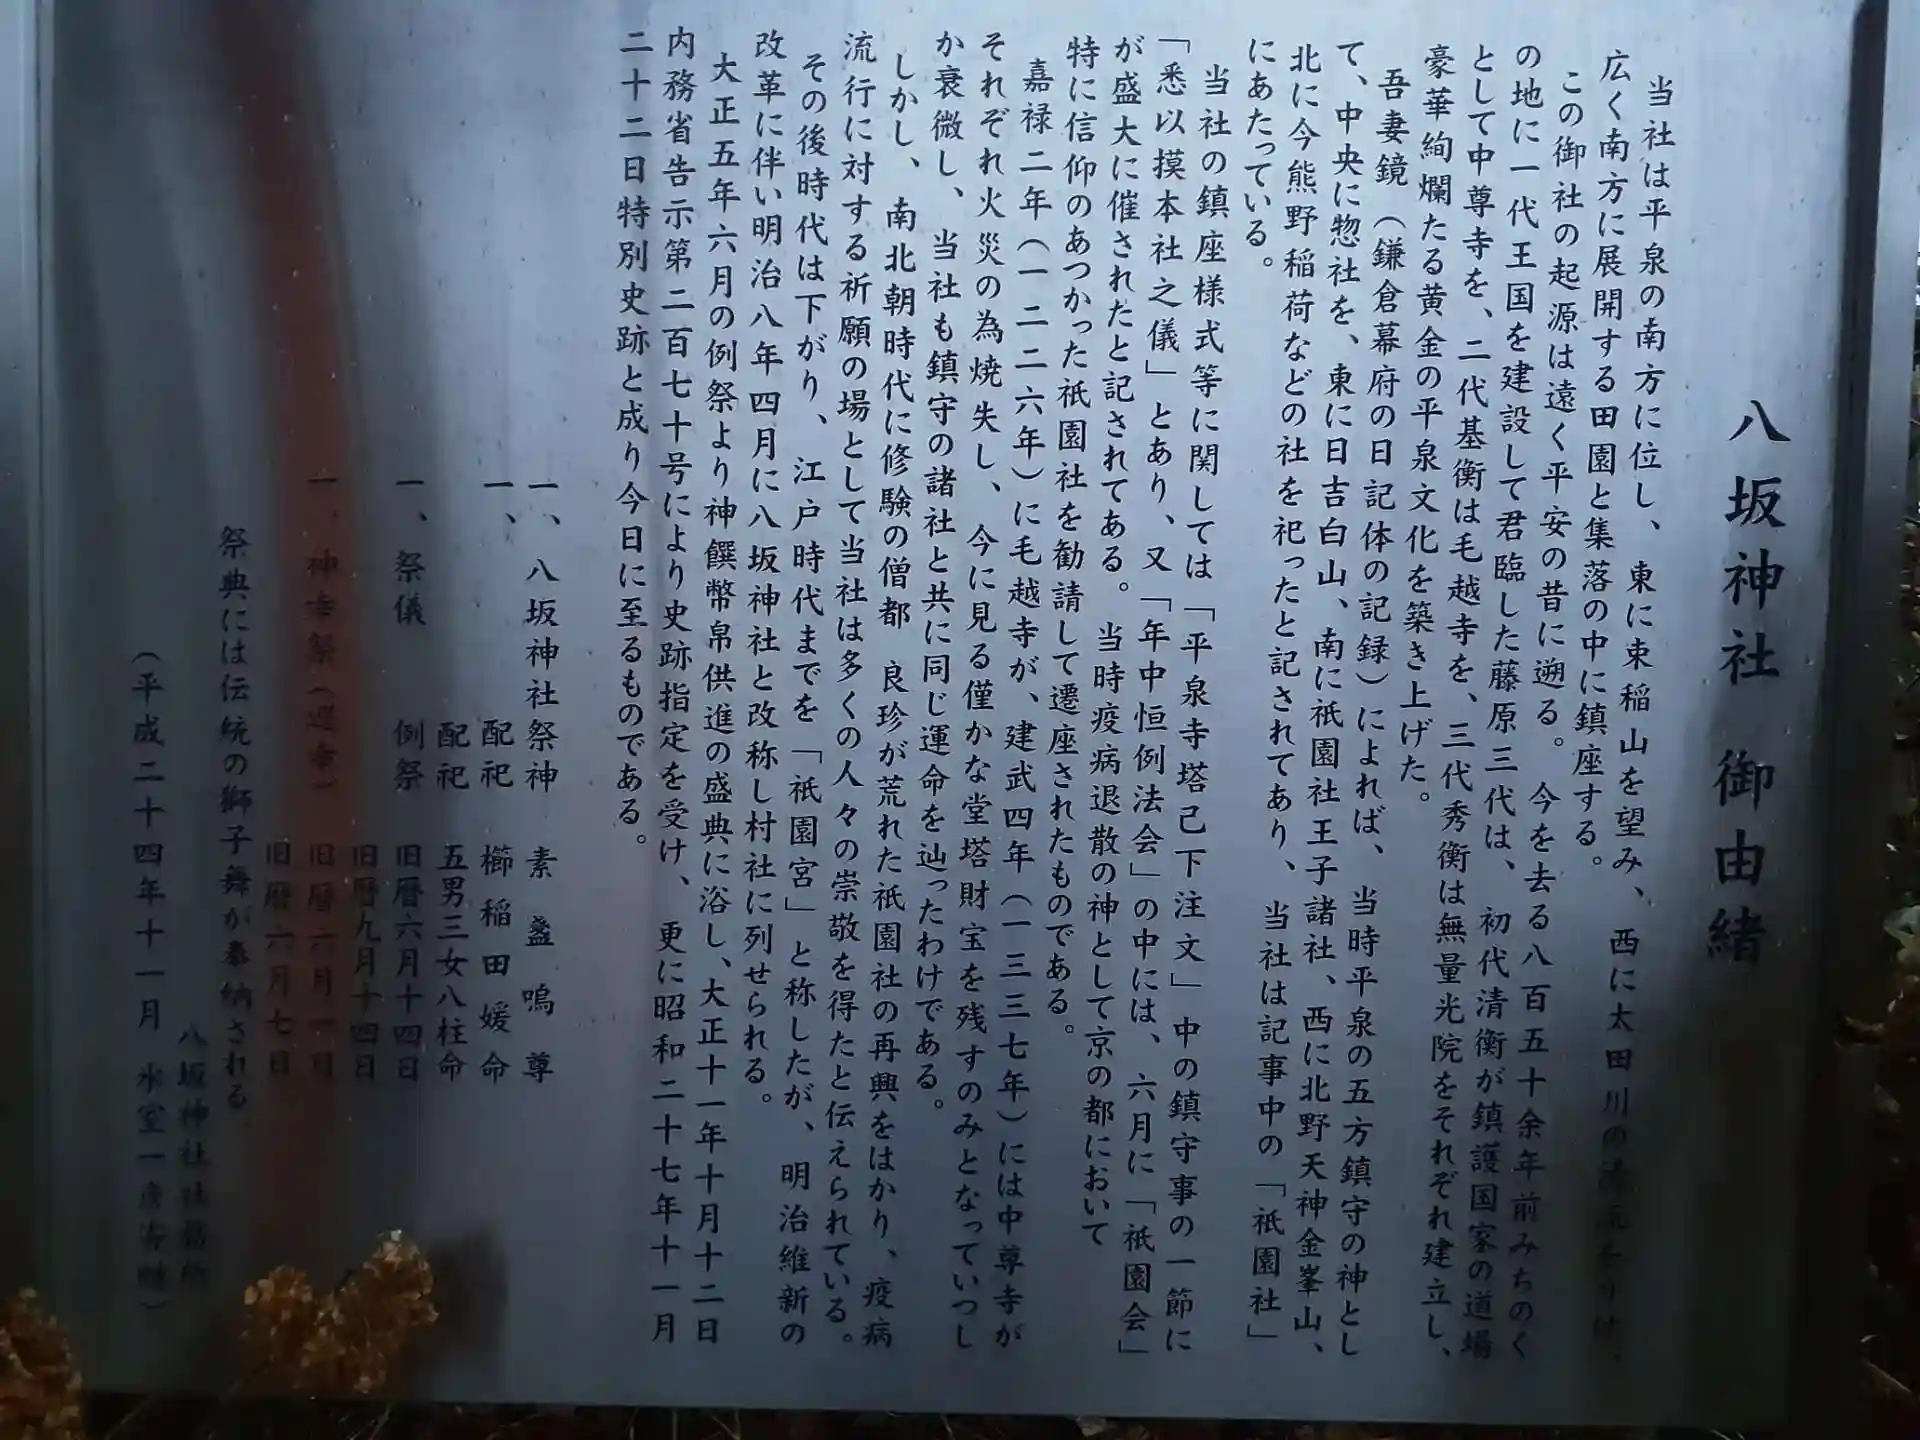 八坂神社 御由緒
当社は平泉の南方に位し、東に束稲山を望み、西に太田川の清流をうけ、
広く南方に展開する田園と集落の中に鎮座する。
この御社の起源は遠く平安の昔に遡る。今を去る八百五十余年前みちのく
の地に一代王国を建設して君臨した藤原三代は、初代清衡が鎮護国家の道場
として中尊寺を、二代基衡は毛越寺を、三代秀衡は無量光院をそれぞれ建立し、
豪華絢爛たる黄金の平泉文化を築き上げた。
吾妻鏡（鎌倉幕府の日記体の記録）によれば、当時平泉の五方鎮守の神とし
て、中央に惣社を、東に日吉白山、南に祇園社王子諸社、西に北野天神金峯山、
北に今熊野稲荷などの社を祀ったと記されてあり、当社は記事中の「祇園社」
にあたっている。
当社の鎮座様式等に関しては「平泉寺塔已下注文」中の鎮守事の一節に
「悉以摸本社之儀」とあり、又「年中恒例法会」の中には、六月に「祇園会」
が盛大に催されたと記されてある。当時疫病退散の神として京の都において
特に信仰のあつかった祇園社を勧請して遷座されたものである。
嘉禄二年（一二二六年）に毛越寺が、建武四年（一三三七年）には中尊寺が
それぞれ火災の為焼失し、今に見る僅かな堂塔財宝を残すのみとなっていつし
か衰微し、当社も鎮守の諸社と共に同じ運命を辿ったわけである。
しかし、南北朝時代に修験の僧都 良珍が荒れた祇園社の再興をはかり、疫病
流行に対する祈願の場として当社は多くの人々の崇敬を得たと伝えられている。
その後時代は下がり、江戸時代までを「祇園宮」と称したが、明治維新の
改革に伴い明治八年四月に八坂神社と改称し村社に列せられる。
大正五年六月の例祭より神饌幣帛供進の盛典に浴し、大正十一年十月十二日
内務省告示第二百七十号により史跡指定を受け、更に昭和二十七年十一月
二十二日特別史跡と成り今日に至るものである。
一、八坂神社祭神 素盞嗚尊
一、 配祀 櫛稲田媛命
配祀 五男三女八柱命
一、祭儀 例祭 旧暦六月十四日
旧暦九月十四日
一、神幸祭（巡幸） 旧暦六月一日
旧暦六月七日
祭典には伝統の獅子舞が奉納される
八坂神社社務所
（平成二十四年十一月 氷室一彦寄贈）